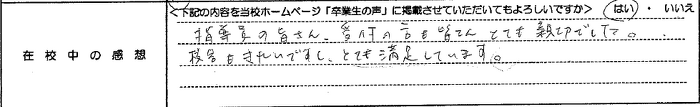 <下記の内容を当校ホームページ「卒業生の声」に掲載させていただいてもよろしいですか> はい ・ いいえ
在校中の感想
指導員の皆さん、受付の方も皆さん とても 親切でした。
校舎もきれいですし、とても満足しています。